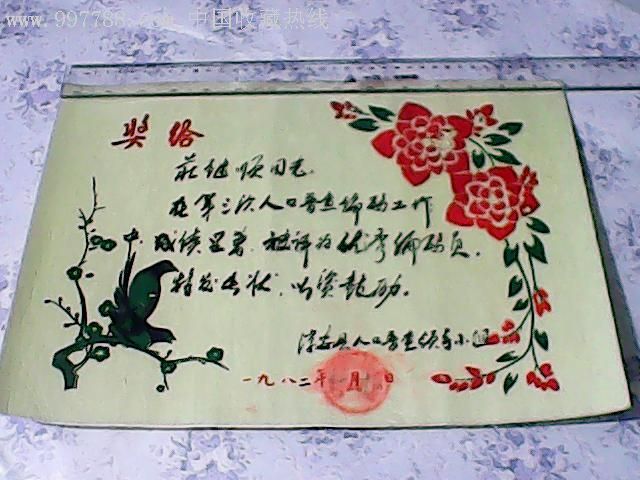 www.997788.com 中国收藏热线
奖给
莊继顺同志
在第三次人口普查编码工作
中,成绩显著,被评为优秀编码员,
特发此状,以资鼓励。
淳安县人口普查领导小组
一九八二年 月 日